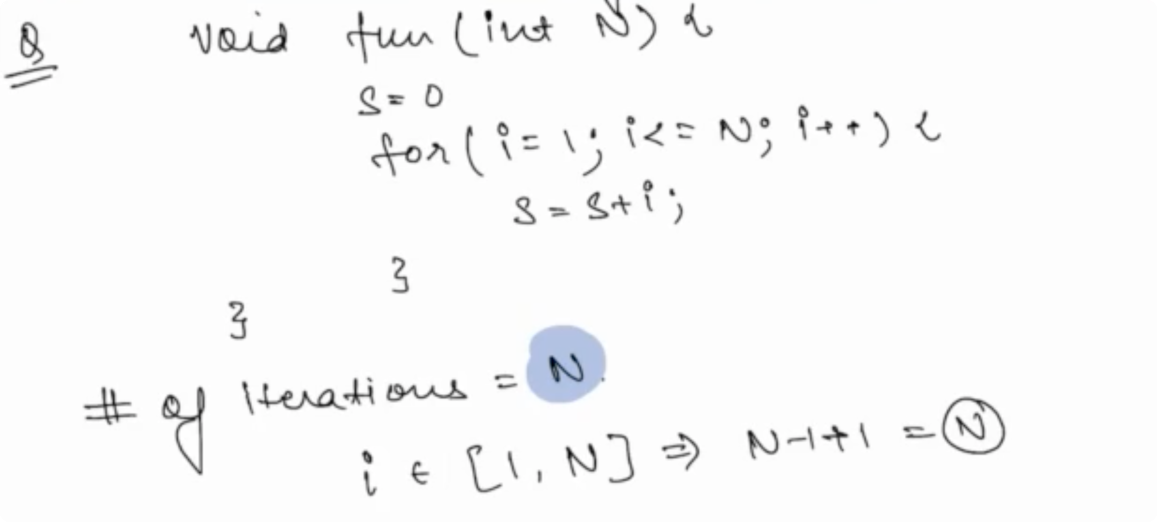 Q void fun (int N) {
S = 0
for ( i = 1; i <= N; i++) {
S = S + i;
}
}
# of iterations = N.
i ∈ [1, N] ⇒ N-1+1 = N